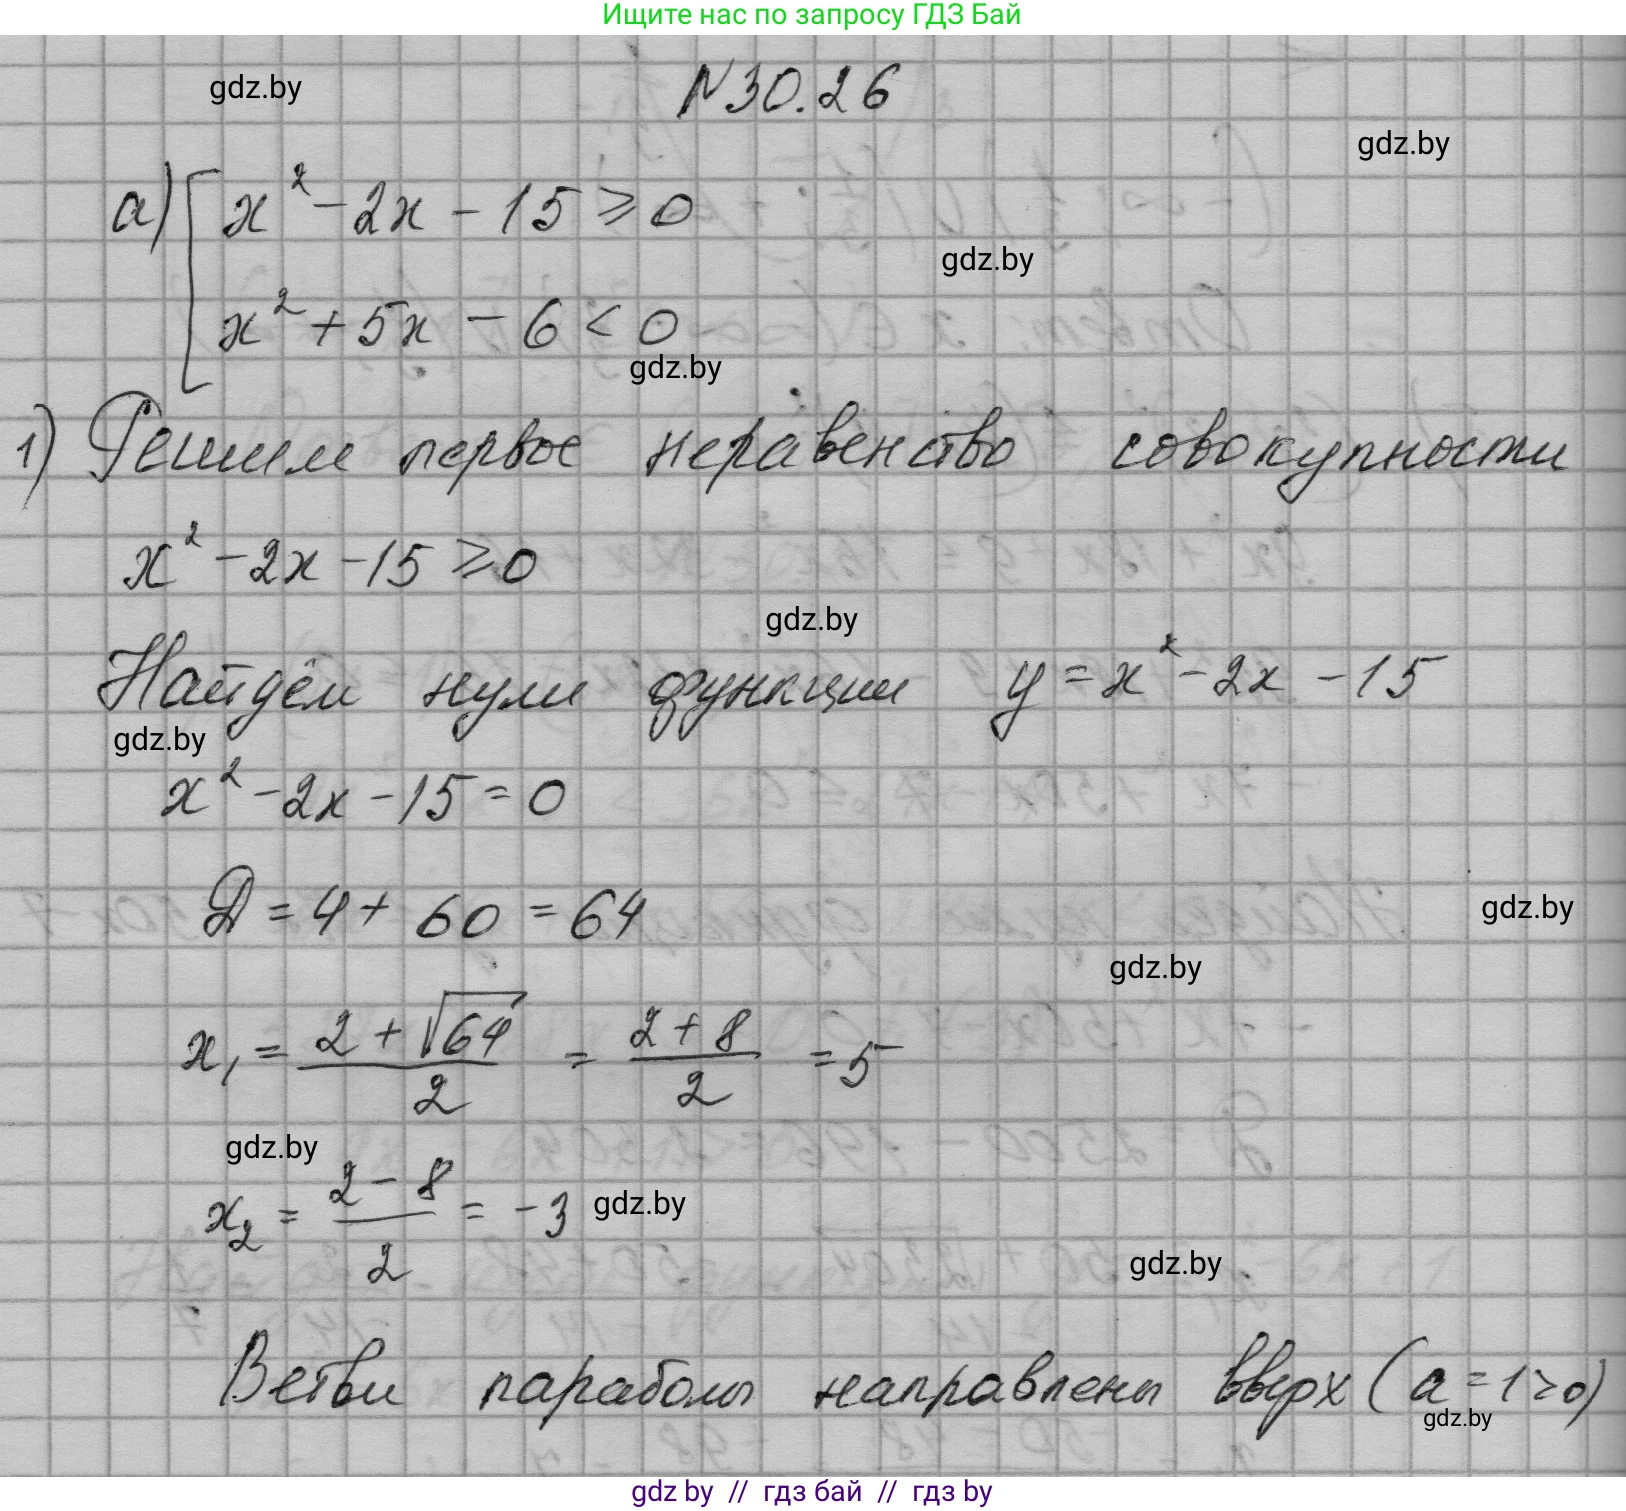 Ищите нас по запросу ГДЗ Бай
gdz.by
N30.26
gdz.by
а) [ x² - 2x - 15 ≥ 0
gdz.by
x² + 5x - 6 < 0
gdz.by
1) Решим первое неравенство совокупности
x² - 2x - 15 ≥ 0
gdz.by
Найдём нули функции y = x² - 2x - 15
gdz.by
x² - 2x - 15 = 0
Д = 4 + 60 = 64
gdz.by
gdz.by
x₁ = (2 + √64)/2 = (2 + 8)/2 = 5
gdz.by
x₂ = (2 - 8)/2 = -3
gdz.by
gdz.by
Ветви параболы направлены вверх (a = 1 > 0)
gdz.by
gdz by // гдз бай // гдз by